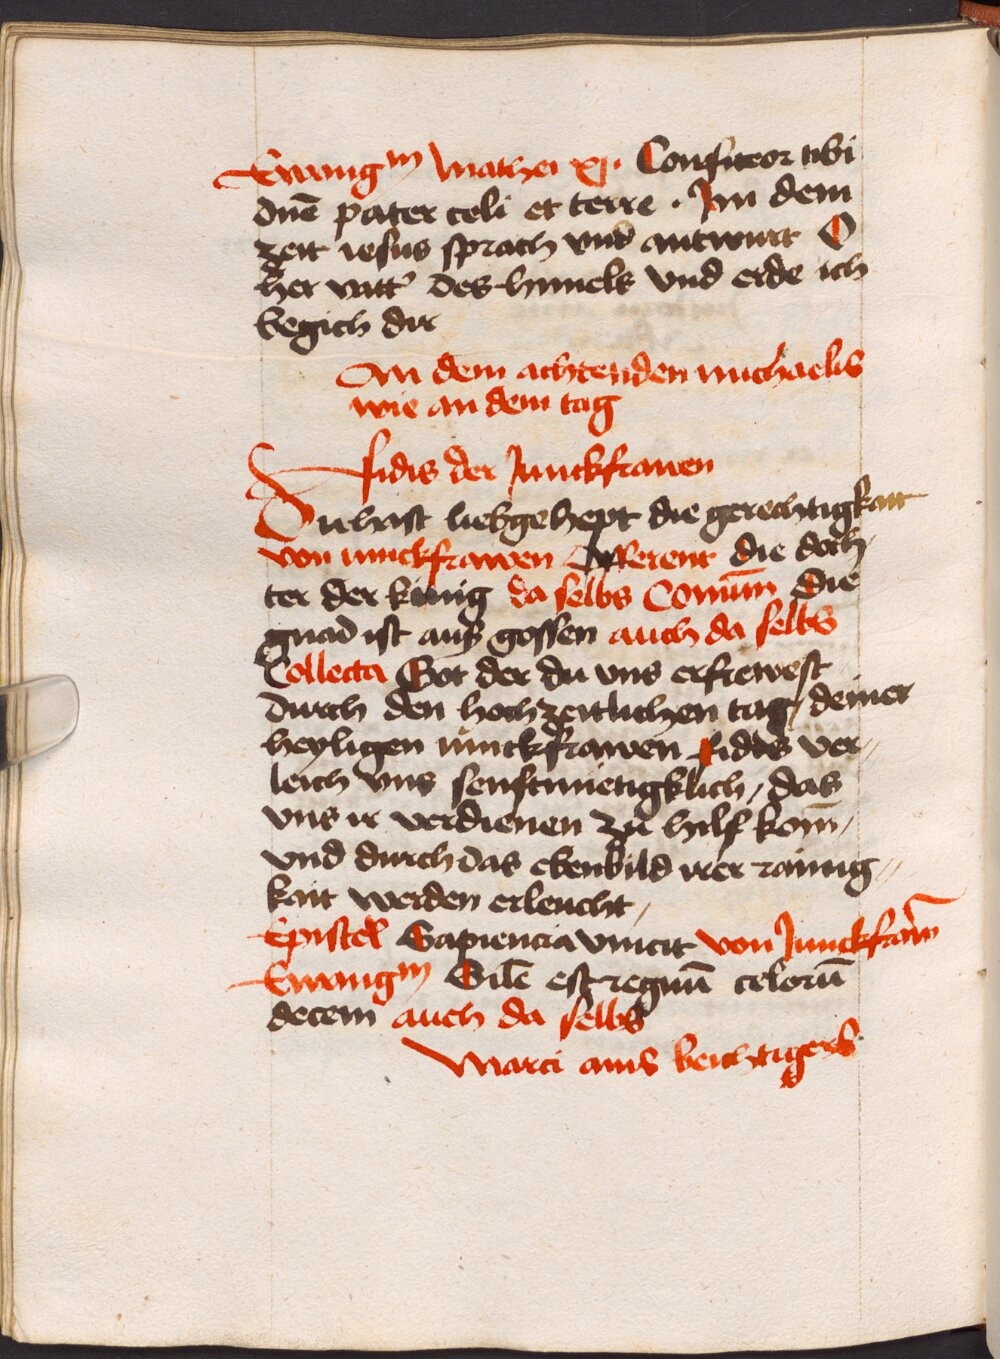 Ewangm Mathei xj. Confiteor tibi
dnē pater celi et terre . Jnn dem
zeit iesus sprach vnd antwurt O
her vatt' des himels vnd erde ich
begich dir
An dem achtenden michaelis
wie an dem tag
fidis der Junckfrauen
Du hast liebgehept die gerechtigkait
von iunckfrawen Offerent die doch
ter der künig da selbs Comūm Die
gnad ist auß gossen auch da selbs
Collecta Got der du vns erfrewest
durch den hochzeitlichen tag / deiner
heyligen iunckfrawen fidis ver//
leich vns senftmietigklich / das
vns ir verdienen zů hilf kom̄ /
vnd durch das ebenbild irer rainig //
kait werden erleucht /
Epistel Sapiencia vincit von Junckfraw̄
Ewangm Sil̄e est regnū celorū
decem auch da selbs
Marci ains beichtigers